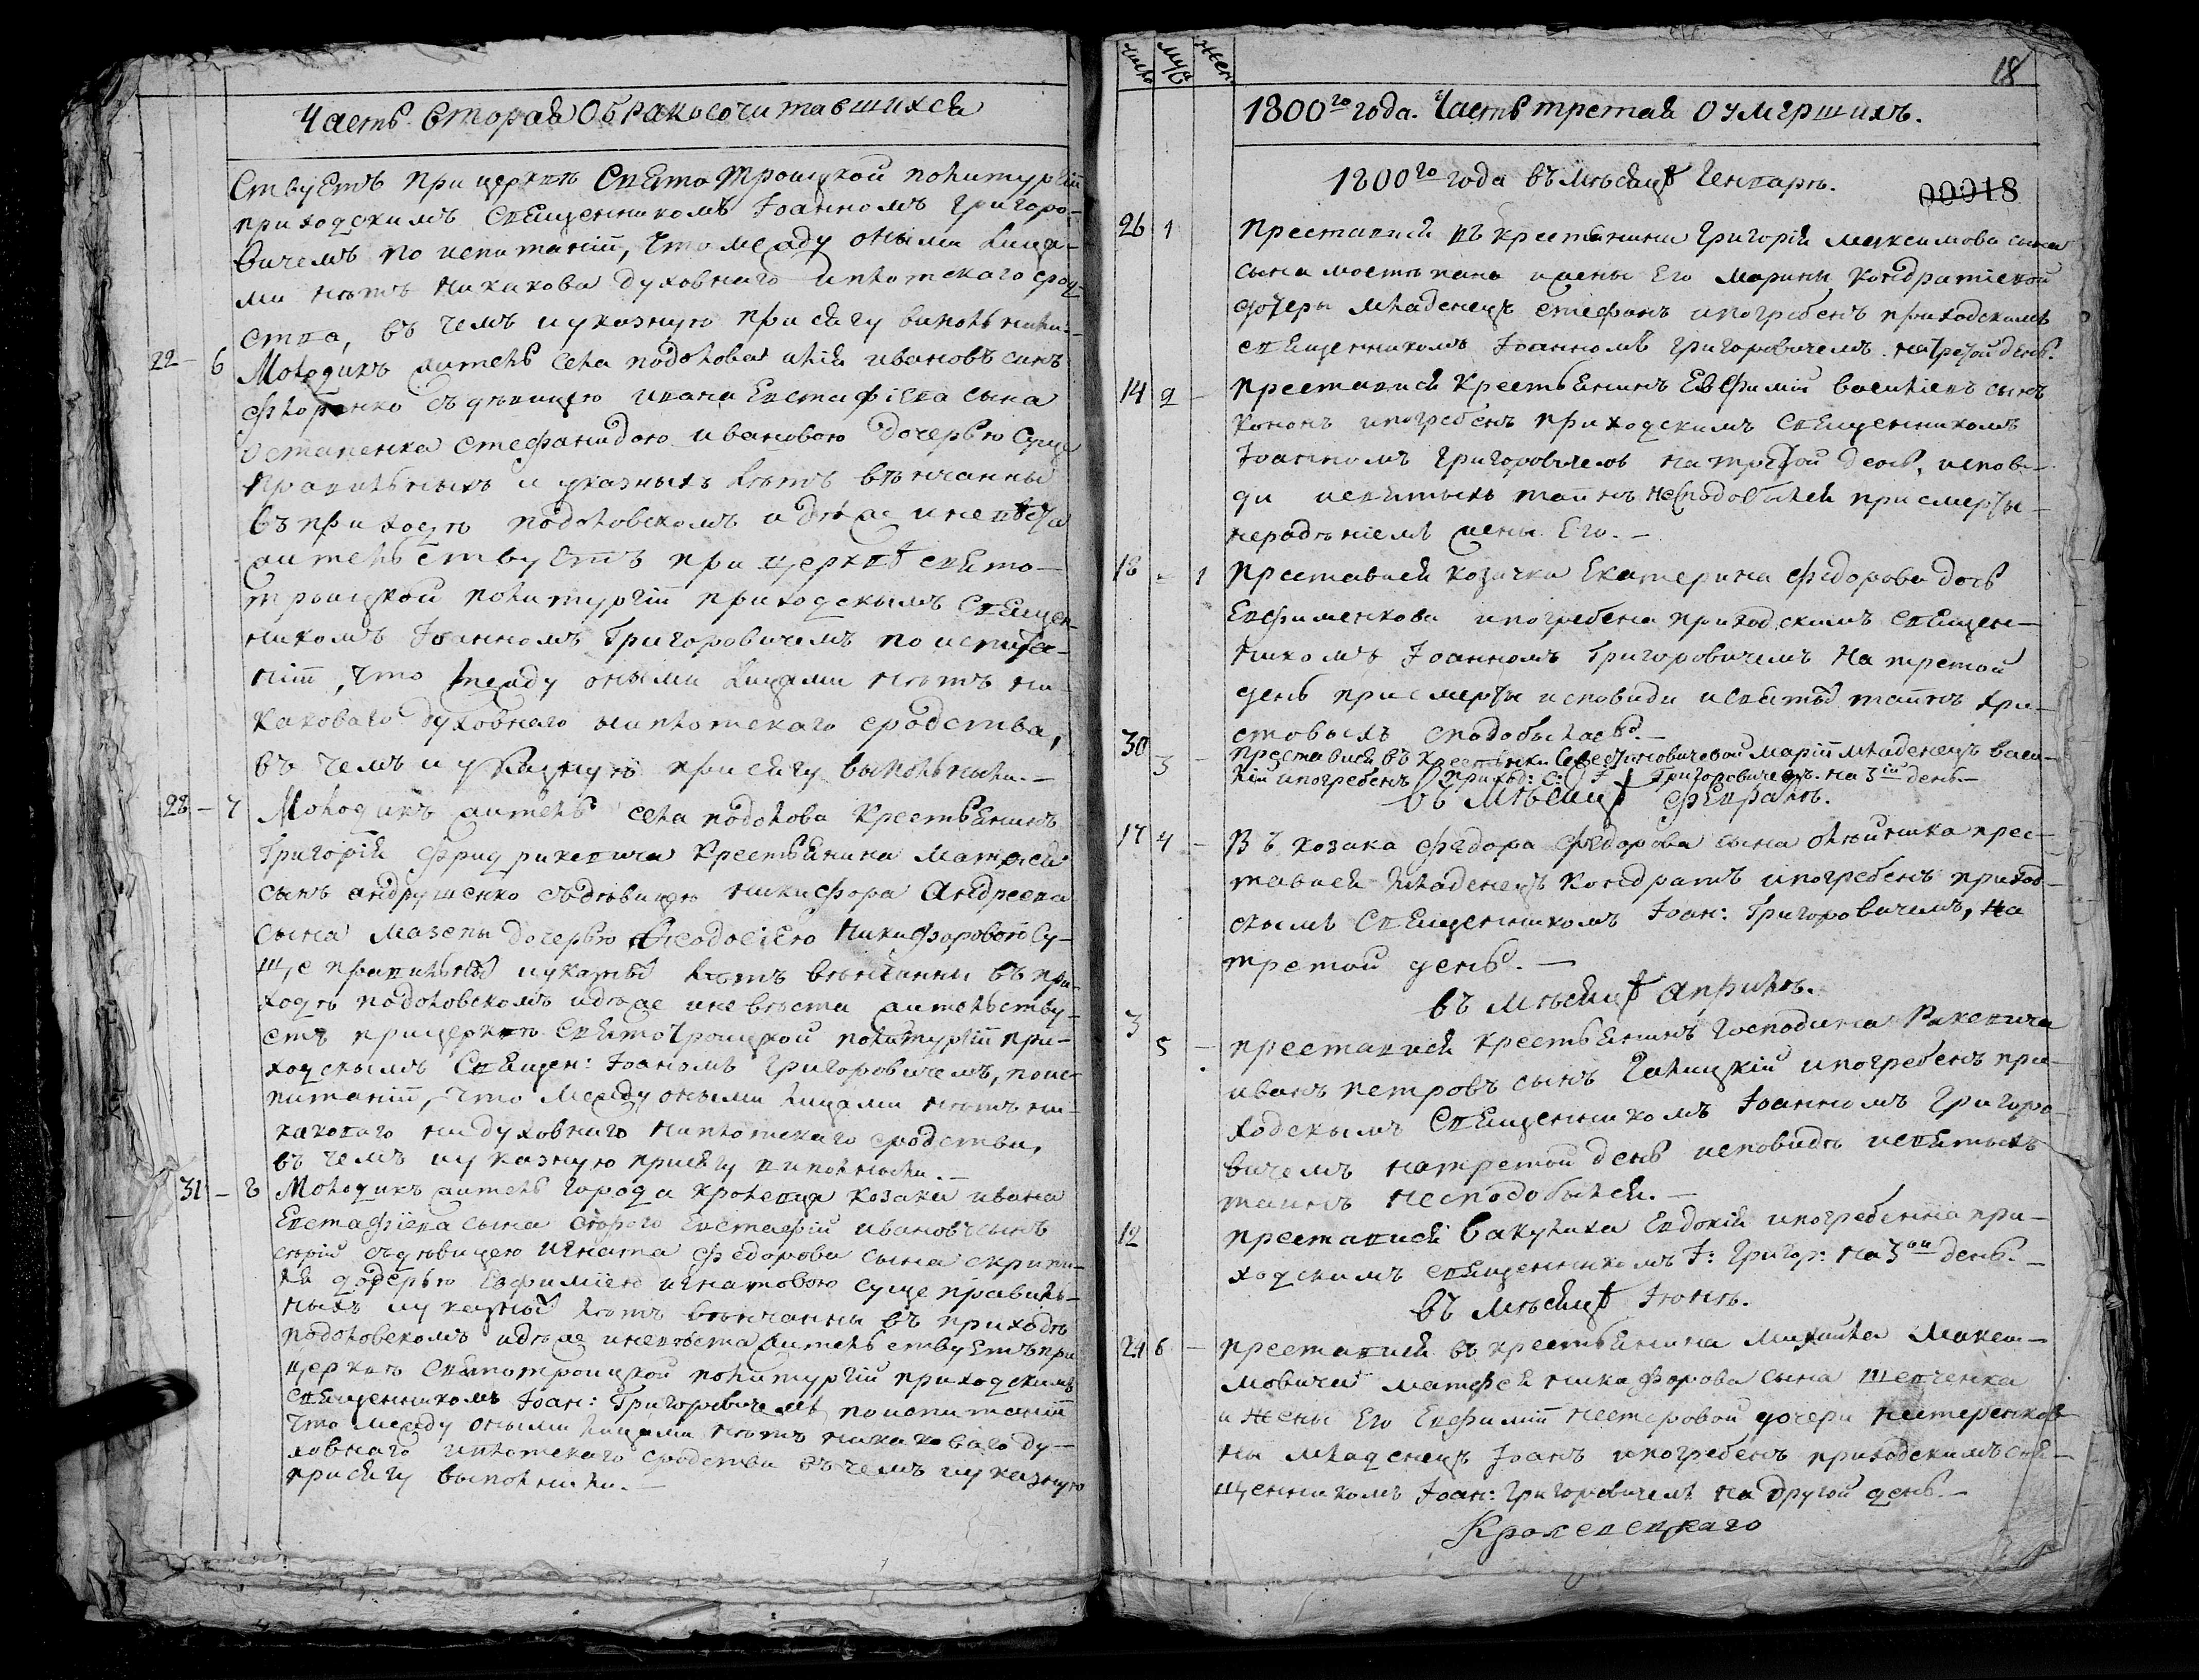 Часть вторая О бракосочитавшихся
ствуетъ при церкве Свято Троицкой по литургіи
приходскимъ Священникомъ Іоанномъ Григоро-
вичемъ по испитаніи, что между оными лица-
ми нѣтъ никакова духовнаго и плотскаго срод-
ства, въ чемъ и указную присягу виполнили.-
22 - 6 Молодикъ житель села подолова ивановъ синъ
съ дѣвицею ивана Евстафіева сына
Остапенка Стефанидою ивановою дочерью Суще
правильныхъ и указныхъ лѣтъ вѣнчанны
въ приходѣ подоловскомъ идѣже и невѣста
жительствуетъ при церквѣ свято-
троицкой по литургіи приходскымъ Священ-
никомъ Іоанномъ Григоровичемъ по испита-
ніи, что между оными лицами нѣтъ ни-
каковаго духовнаго и плотскаго сродства,
въ чемъ и указную присягу выполныли.-
28 - 7 Молодикъ житель села подолова Крестьянинъ
Григорій Крестьянина Матфей
сынъ андрушенко съ дѣвицею никифора Андреева
сына Мазепы дочерью Феодосіею Никифоровою Су-
ще правильны и указны лѣтъ вѣнчанни въ при-
ходѣ подоловскомъ идѣже и невѣста жительству-
етъ при церквѣ Святотроицкой по литургіи при-
ходскымъ Священ: Іоаномъ Григоровичемъ, по ис-
питаніи, что Между оными лицами нѣтъ ни-
каковаго ни духовнаго ни плотскаго сродства,
въ чемъ и указную присягу виполныли.-
31 - 8 Молодикъ житель города Кролевця козака ивана
Евстафіева сына Евстафій ивановъ сынъ
съ дѣвицею игната Федорова сына
дочерью Евфиміею игнатовою суще правиль-
ныхъ и указны лѣтъ вѣнчанны въ приходѣ
подоловскомъ идѣже и невѣста жительствуетъ при
церквѣ Святотроицкой по литургіи приходскимъ
священникомъ Іоан: Григоровичемъ по испитаніи
что между оными лицами нѣтъ никаковаго ду-
ховнаго и плотскаго сродства въ чемъ и указную
присягу выполныли.-
число муж жен
18
1800го года. Часть третая О умершихъ.
1800го года въ мѣсяцѣ Генварѣ.
00018
26 1 Преставися въ крестьянина Григорія максимова сына
сына и жены Его Марины Кондратіевой
дочеры младенецъ стефанъ и погребенъ приходскимъ
священникомъ Іоанномъ Григоровичемъ на третой день.
14 2 - преставися Крестьянинъ Евфимій василіевъ сынъ
Кононъ и погребенъ приходскимъ Священникомъ
Іоанномъ Григоровичемъ на третой день, испове-
ди и святыхъ таинъ не сподобился при смерты
нерадѣніемъ жены Его.-
18 - 1 преставися козачка Екатерина федорова дочь
Евфименкова и погребена приходскимъ священ-
никомъ Іоанномъ Григоровичемъ На третой
день при смерты исповиди и святы таинъ хри-
стовыхъ сподобылась.-
30 3 - преставися въ Крестянки Маріи младенецъ васи-
лій и погребенъ приход: с: І Григоровичемъ. на 3й день-
въ мѣсяцѣ февралѣ.
17 4 - Въ козака федора федорова сына олѣйника прес-
тавися младенецъ Кондратъ и погребенъ приход-
скымъ Священникомъ Іоан: Григоровичемъ, На
третой день.-
въ мѣсяцѣ априлѣ.
3 5 - преставися крестьянинъ господина Раковича
иванъ петровъ сынъ Галицкій и погребенъ при-
ходскымъ Священникомъ Іоанномъ Григоро-
вичемъ на третой день исповидѣ и святыхъ
таинъ не сподобылся.-
12 преставися вакулиха Евдокія и погребенна при-
ходскимъ священникомъ І: Григор: на 3ой день.-
въ мѣсяцѣ Іюнѣ.
24 6 - преставися въ крестьянина Михаила Макси-
мовича матфея никифорова сына Шевченка
и жены Его Евфиміи нестеровой дочери нестеренков
ны младенецъ Іоанъ и погребенъ приходскимъ свя-
щенникомъ Іоан: Григоровичемъ на другой день.-
Кролевецкаго